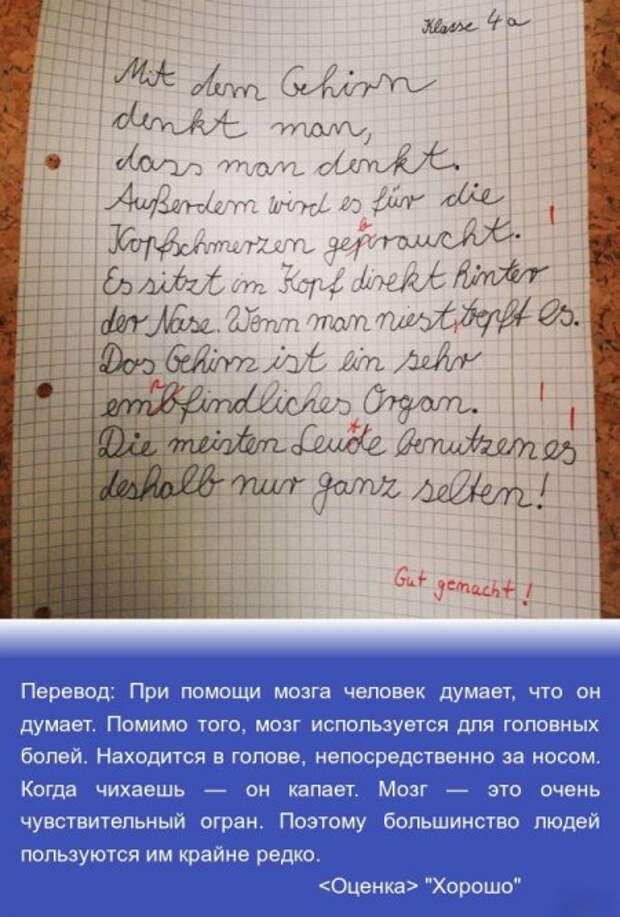 Klasse 4a
Mit dem Gehirn
denkt man,
dass man denkt.
Außerdem wird es für die
Kopfschmerzen gepraucht.
Es sitzt im Kopf direkt hinter
der Nase. Wenn man niest, tropft es.
Das Gehirn ist ein sehr
embfindliches Organ.
Die meisten Leude benutzen es
deshalb nur ganz selten!
Gut gemacht!
Перевод: При помощи мозга человек думает, что он
думает. Помимо того, мозг используется для головных
болей. Находится в голове, непосредственно за носом.
Когда чихаешь — он капает. Мозг — это очень
чувствительный огран. Поэтому большинство людей
пользуются им крайне редко.
<Оценка> "Хорошо"